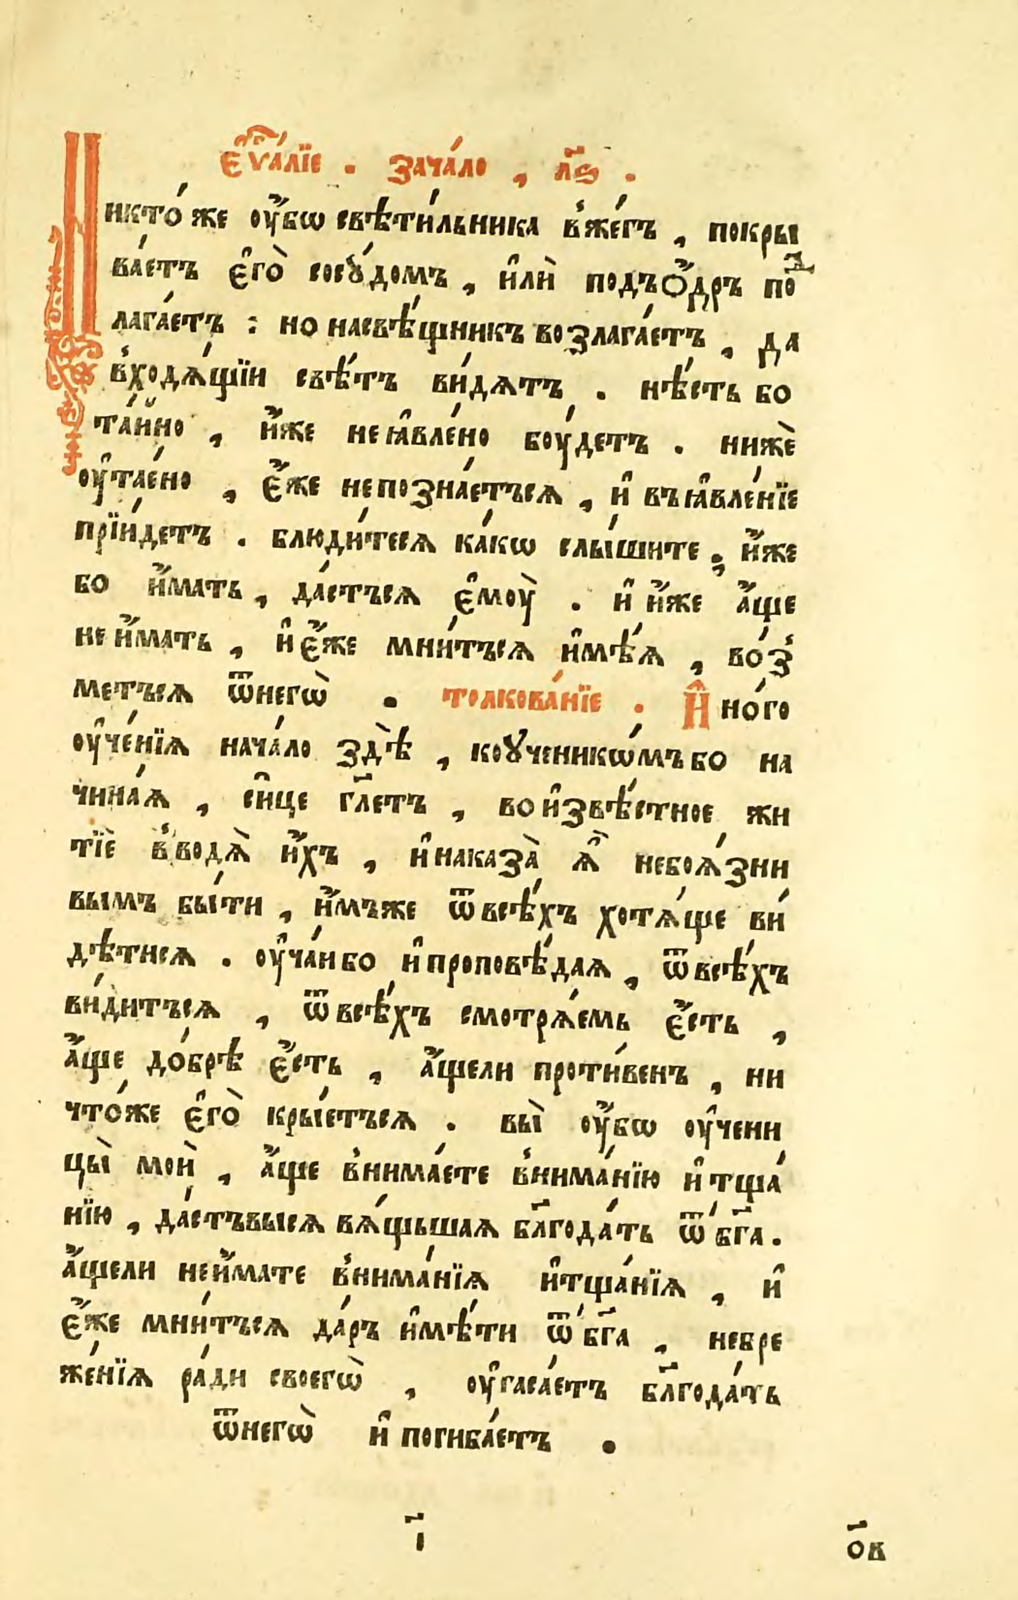 Є҆ѵⷢ҇а́лїе . зача́ло , л҃ѕ .
Никто́же ᲂу҆́бѡ свѣти́льника в̾же́гъ , покры
ва́етъ є҆го̀ сосꙋ́домъ , и҆лѝ подъѻ҆́дръ по
лага́етъ : но насвѣ́щникъ возлага́етъ , да
в̾ходѧ́щїи свѣ́тъ ви́дѧтъ . нѣ́сть бо
та́йно , и҆́же неꙗ҆вле́но боу́детъ . нижѐ
ᲂу҆тае́но , є҆́же непозна́етъсѧ , и҆ въꙗ҆вле́нїе
прїи́детъ . блюди́тесѧ ка́кѡ слы́шите , и҆́же
бо и҆́мать , да́стъсѧ є҆моу̀ . и҆ и҆́же а҆́ще
неи҆́мать , и҆ є҆́же мни́тъсѧ и҆мѣ́ѧ , во́з̾
метъсѧ ѿнегѡ̀ . толкова́нїе . И҆но́го
ᲂу҆че́нїѧ нача́ло здѣ̀ , коꙋченикѡ́мъ бо на
чина́ѧ , си́це гл҃етъ , во и҆звѣ́стное жи
тїѐ в̾водѧ̀ и҆́хъ , и҆ наказа̀ ѧ҆̀ небоѧ́зни
вымъ бы́ти , и҆́мъже ѿ всѣ́хъ хотѧ́ще ви́
дѣтисѧ . ᲂу҆ча́и бо и҆ проповѣ́даѧ , ѿ всѣ́хъ
ви́дитъсѧ , ѿ всѣ́хъ смотрѧ́емь є҆́сть ,
а҆́ще до́брѣ є҆́сть , а҆́щели проти́венъ , ни
что́же є҆го̀ кры́етъсѧ . вы̀ ᲂу҆́бѡ ᲂу҆чени
цы̀ моѝ , а҆́ще в̾нима́ете в̾нима́нїю и҆ тща́
нїю , да́стъвысѧ вѧ́щьшаѧ бл҃года́ть ѿ бг҃а .
а҆́щели неи҆́мате в̾нима́нїѧ и҆тща́нїѧ , и҆
є҆́же мни́тъсѧ да́ръ и҆мѣ́ти ѿ бг҃а , небре
же́нїѧ ра́ди своегѡ̀ , ᲂу҆гаса́етъ бл҃года́ть
ѿнегѡ̀ и҆ погиба́етъ .
і҃ о҃в